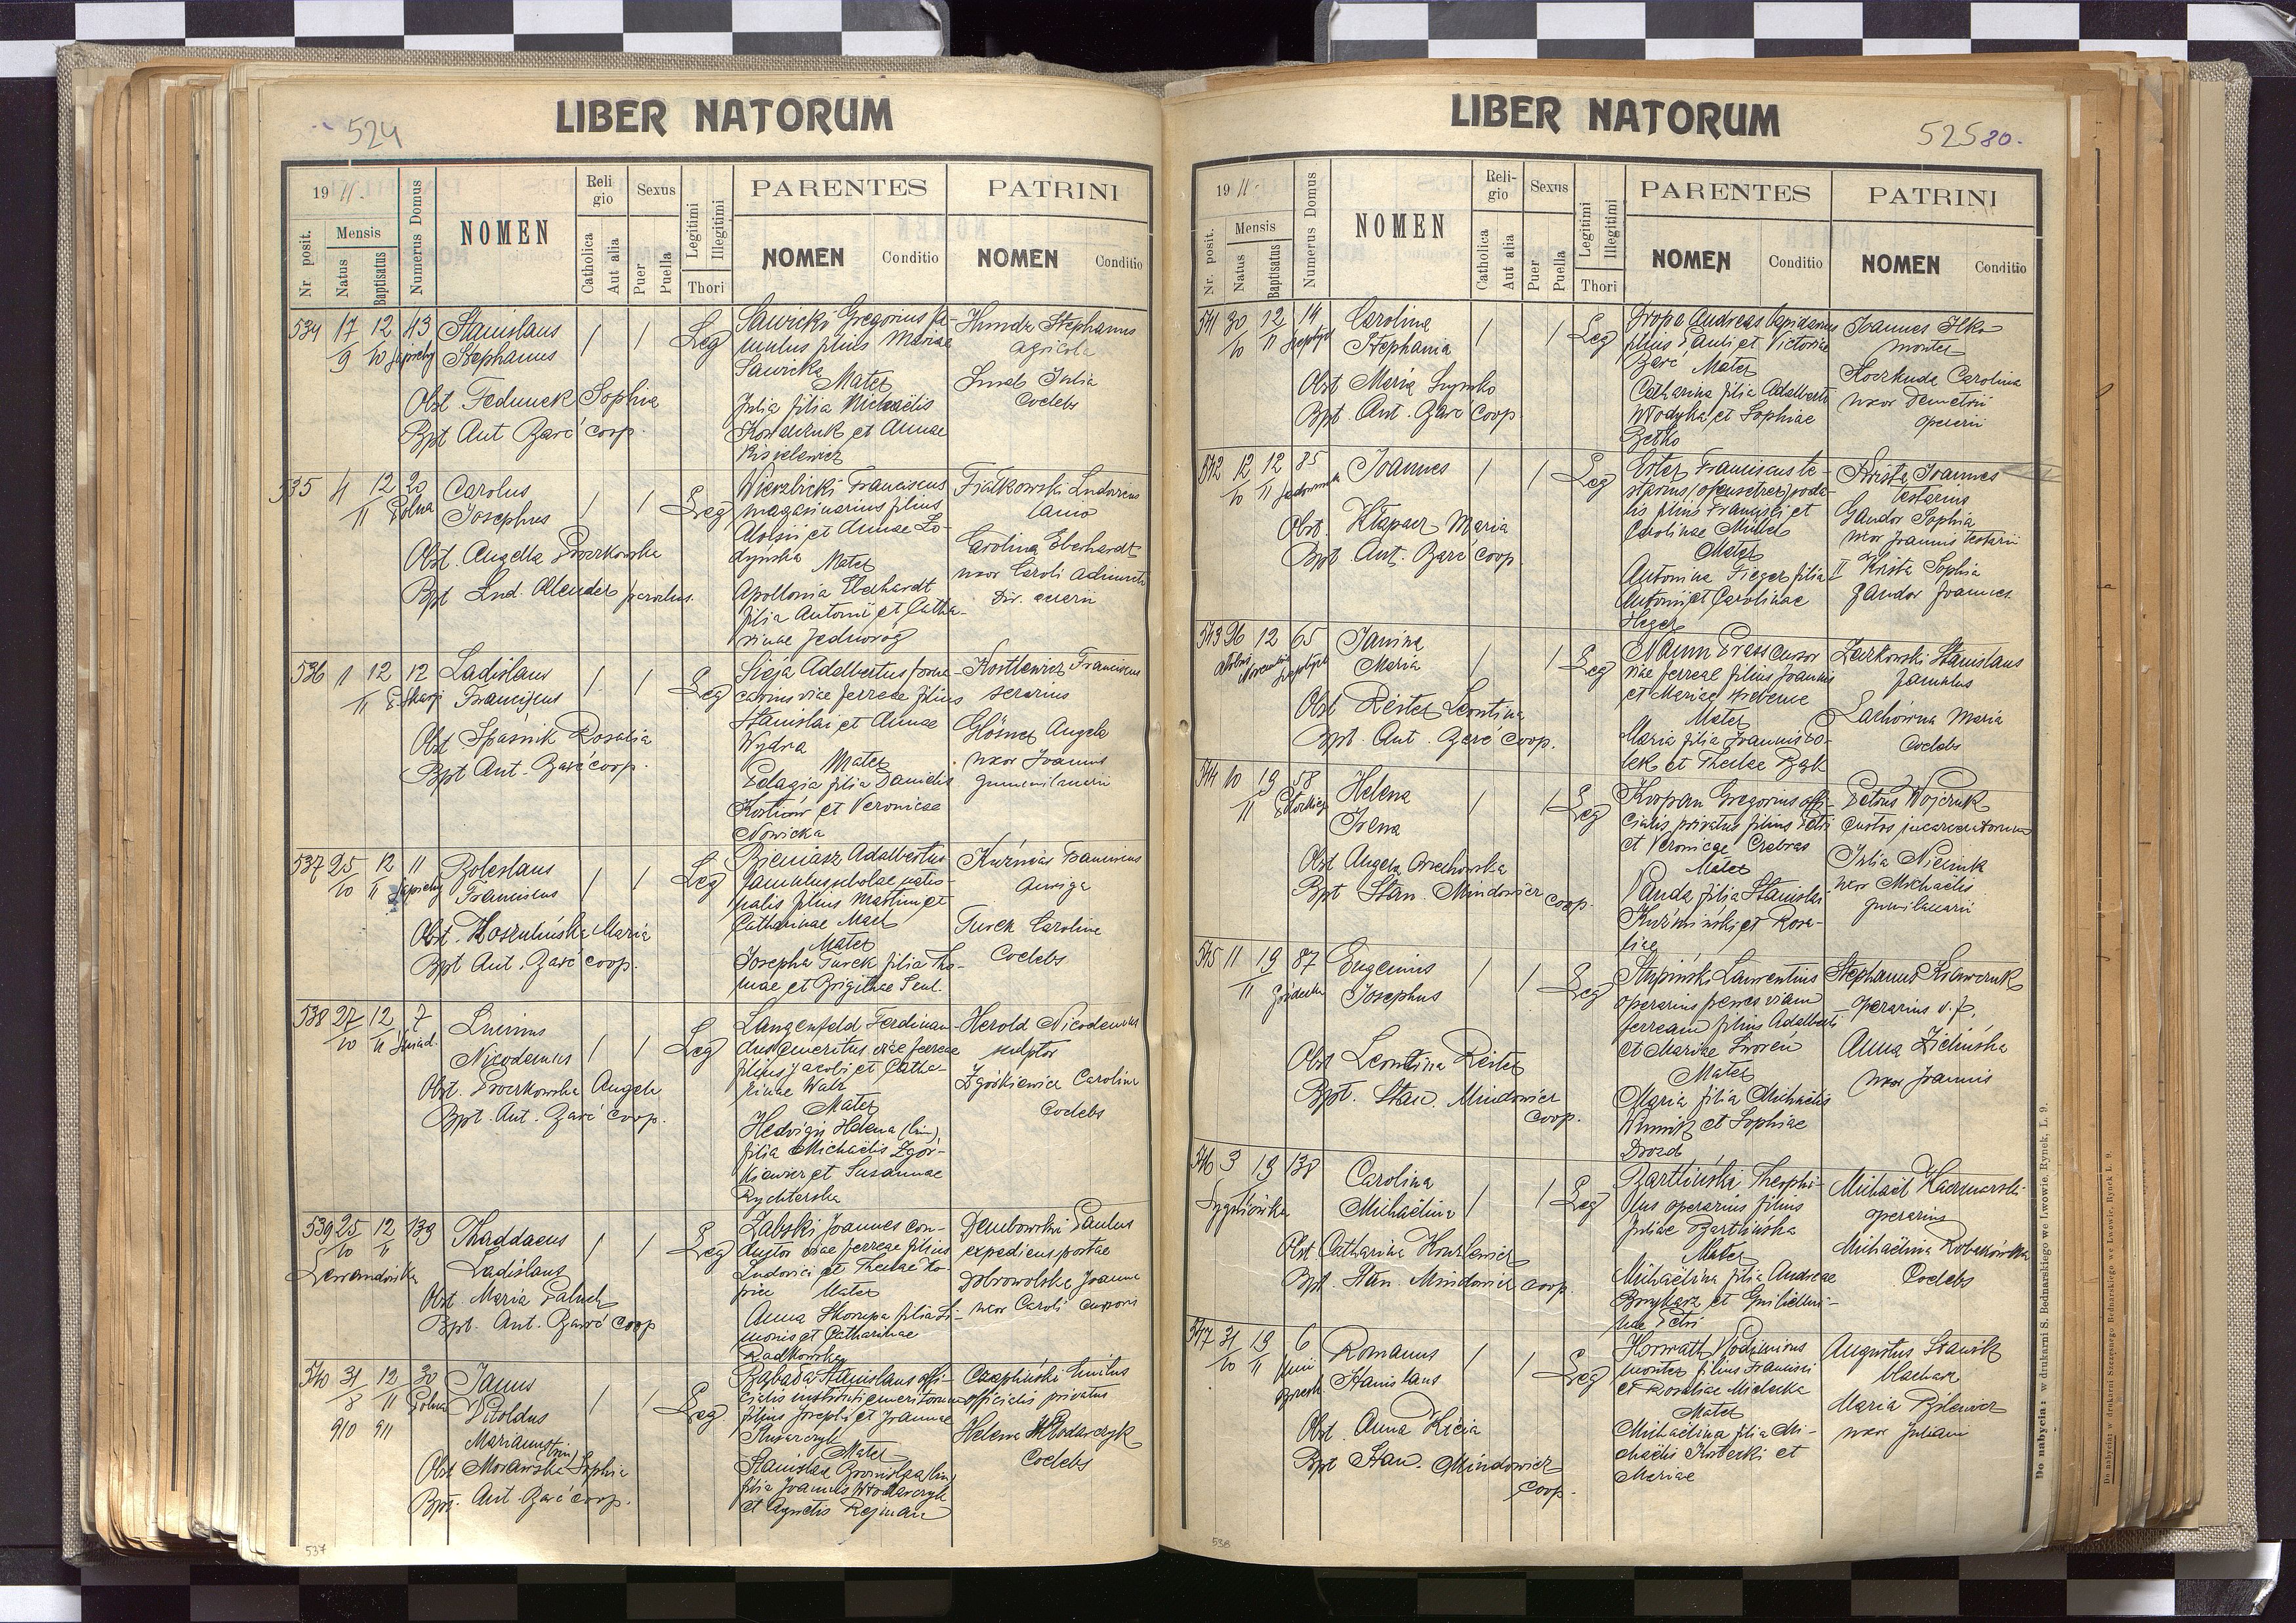 524
LIBER NATORUM
19 11.
Nr. posit.
Mensis
Natus
Baptisatus
Numerus Domus
NOMEN
Religio
Catholica
Aut alia
Sexus
Puer
Puella
Legitimi
Illegitimi
Thori
PARENTES
NOMEN
Conditio
PATRINI
NOMEN
Conditio
534 17/9 12/10 43 Sapiehy
Stanislaus
Stephanus
1 1 Leg
Obst Fedunek Sophia
Bpt Ant Barć coop.
Sawicki Gregorius fa-
mulus filius Mariae
Sawicka
Mater
Julia filia Michaëlis
Kowalczuk et Annae
Stephanus
agricola
Julia
Coelebs
535 4/11 12 20 Polna
Carolus
Josephus
1 1 Leg
Obst. Angela Proczkowska
Bpt Lud. Olender parochus.
Wierzbicki Franciscus
magasinarius filius
Aloisii et Annae Lo-
dynska
Mater
Apollonia Eberhardt
filia Antonii et Catha-
rinae Jednoróg
Fiałkowski Ludovicus
lanio
Carolina Eberhardt
uxor Caroli
536 1/11 12 12 P. Skargi
Ladislaus
Franciscus
1 1 Leg
Obst. Spaśnik Rosalia
Bpt Ant. Barć coop.
Sieja Adalbertus
viae ferreae filius
Stanislai et Annae
Wydra
Mater
Pelagia filia Danielis
et Veronicae
Nowicka
Kostkewicz Franciscus
serarius
Glösner Angela
uxor Joannis
537 25/10 12/11 11 Sapiehy
Boleslaus
Franciscus
1 1 Leg
Obst. Koszulińska Maria
Bpt Ant. Barć coop.
Bieniasz Adalbertus
famulus scholae natio-
nalis filius Martini et
Catharinae Mach
Mater
Josepha Turek filia Tho-
mae et Brigittae
Kuźniar Franciscus
auriga
Turek Carolina
Coelebs
538 27/10 12/11 7
Lucinus
Nicodemus
1 1 Leg
Obst. Proczkowska Angela
Bpt. Ant. Barć coop.
Langenfeld Ferdinan-
dus emeritus viae ferreae
filius Jacobi et Catha-
rinae Walz
Mater
Hedvigis Helena (bin)
filia Michaëlis Zgór-
kiewicz et Susannae
Rychterska
Herold Nicodemus
sculptor
Zgórkiewicz Carolina
Coelebs
539 25/10 12/11 139
Lewandówka
Thaddaeus
Ladislaus
1 1 Leg
Obst. Maria Paluch
Bpt. Ant. Barć coop
Zabski Joannes con-
ductor viae ferreae filius
Ludovici et Theclae
Mater
Anna Skorupa filia Si-
monis et Catharinae
Radkowska
Dembowski Paulus
expediens postae
Dobrowolska Joanna
uxor Caroli cursoris
540 31/8 12/11 30 Polna
910 911
Janus
Vitoldus
Marianus (trin)
1 1 Leg
Obst Morawska Sophia
Bpt. Ant. Barć coop.
Stanislaus offi-
cialis instituti emeritorum
filius Josephi et Joannae
Mater
Stanislaa Bronislaa (bin)
filia Joannis Włodarczyk
et Agnetis Rejman
Czapliński Emilus
officialis privatus
Helena Włodarczyk
Coelebs
537
LIBER NATORUM
525 80.
19 11.
Nr. posit.
Mensis
Natus
Baptisatus
Numerus Domus
NOMEN
Religio
Catholica
Aut alia
Sexus
Puer
Puella
Legitimi
Illegitimi
Thori
PARENTES
NOMEN
Conditio
PATRINI
NOMEN
Conditio
541 30/10 12/11 14
Carolina
Stephania
1 1 Leg
Obst Maria
Bpt. Ant. Barć coop
Andreas lapidarius
filius Pauli et Victoriae
Barć Mater
Catharina filia Adalberti
Włodyka et Sophiae
Joannes Ilko
monter
Carolina
uxor Demetrii
operarii
542 12/10 12/11 85
Joannes
1 1 Leg
Obst. Kłapacz Maria
Bpt. Ant. Barć coop
Ester Franciscus te-
starius
filius Francisci et
Carolinae Mülber
Mater
Antonina Fieger filia
Antonii et Carolinae
Heger
Krista Joannes
testarius
Gandor Sophia
uxor Joannis testarii
II Krista Sophia
Gandor Joannes.
543 26 12 65
octobris novembris
Janina
Maria
1 1 Leg
Obst Reiter Leontina
Bpt. Ant. Barć coop.
cursor
viae ferreae filius Joannis
et Mariae
Mater
Maria filia Joannis
et Theclae Bąk
Żarkowski Stanislaus
famulus
Lachówna Maria
Coelebs
544 10/11 19 58
Helena
Irena
1 1 Leg
Obst Angela Orzechowska
Bpt Stan. Mindowicz coop.
Gregorius offi-
cialis privatus filius Petri
et Veronicae
Mater
Vanda filia Stanislai
Kuźmiński et Rosa-
liae
Petrus Wojczuk
custos incarceratorum
Julia
uxor Michaëlis
545 11/11 19 87 Gródecka
Eugenius
Josephus
1 1 Leg
Obst Leontina Reiter
Bpt. Stan. Mindowicz
coop.
Stupiński Laurentius
operarius penes viam
ferream filius Adalberti
et Mariae Sworeń
Mater
Maria filia Michaëlis
et Sophiae
Drozd
Stephanus Krawczuk
operarius v. f.
Anna Zielińska
uxor Joannis
546 3 19 138
Sygniówka
Carolina
Michaëlina
1 1 Leg
Obst Catharina
Bpt. Stan. Mindowicz coop.
Bartliński Theophi-
lus operarius filius
Juliae Bartlińska
Mater
Michaëlina filia Andreae
et Guilielmi-
nae Petri
Michaël Kaczmarski
operarius
Michaëlina
Coelebs
547 31/10 19/11 6
Romanus
Stanislaus
1 1 Leg
Obst. Anna Kicia
Bpt Stan. Mindowicz
coop.
Horwath Vladimirus
monter filius Francisci
et Rosaliae Mielecka
Mater
Michaëlina filia Mi-
chaëlis Kostecki et
Mariae
Augustus Stanik
blacharz
Maria
uxor Juliani
538
Do nabycia: w drukarni S. Bednarskiego we Lwowie, Rynek, L. 9.
Do nabycia: w drukarni Szczęsnego Bednarskiego we Lwowie, Rynek L. 9.